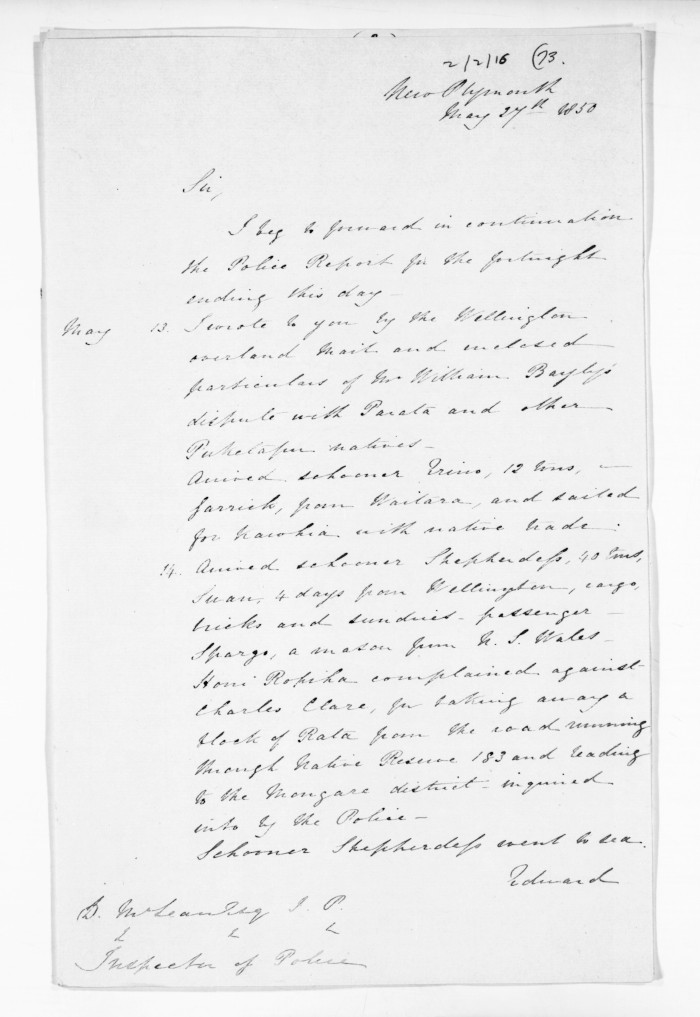 2/2/16 (73.
New Plymouth
May 27th 1850
Sir,
I beg to forward in continuation
the Police Report for the fortnight
ending this day—
May 13. I wrote to you by the Wellington
overland Mail and enclosed
particulars of Mr William Bayly's
dispute with Parata and other
Puketapu natives—
Arrived schooner Erino, 12 Tons, —
Garrick, from Waitara, and sailed
for Kawhia with native trade.
14. Arrived schooner Shepherdess, 40 Tons,
Swan, 4 days from Wellington, cargo,
bricks and sundries— passenger—
Spargo, a mason from N. S. Wales—
Honi Ropiha complained against
Charles Clare, for taking away a
block of Rata from the road running
through Native Reserve 183 and leading
to the Mongare district— inquired
into by the Police—
Schooner Shepherdess went to sea.
Edward
D. McLean Esq J. P.
Inspector of Police